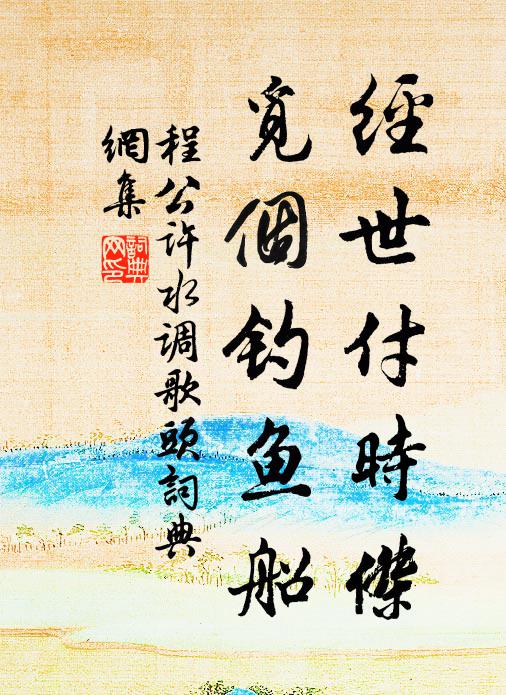 經世付時傑
覓個钓鱼船
程公许水调歌頭詞典
網集
詞典
网印